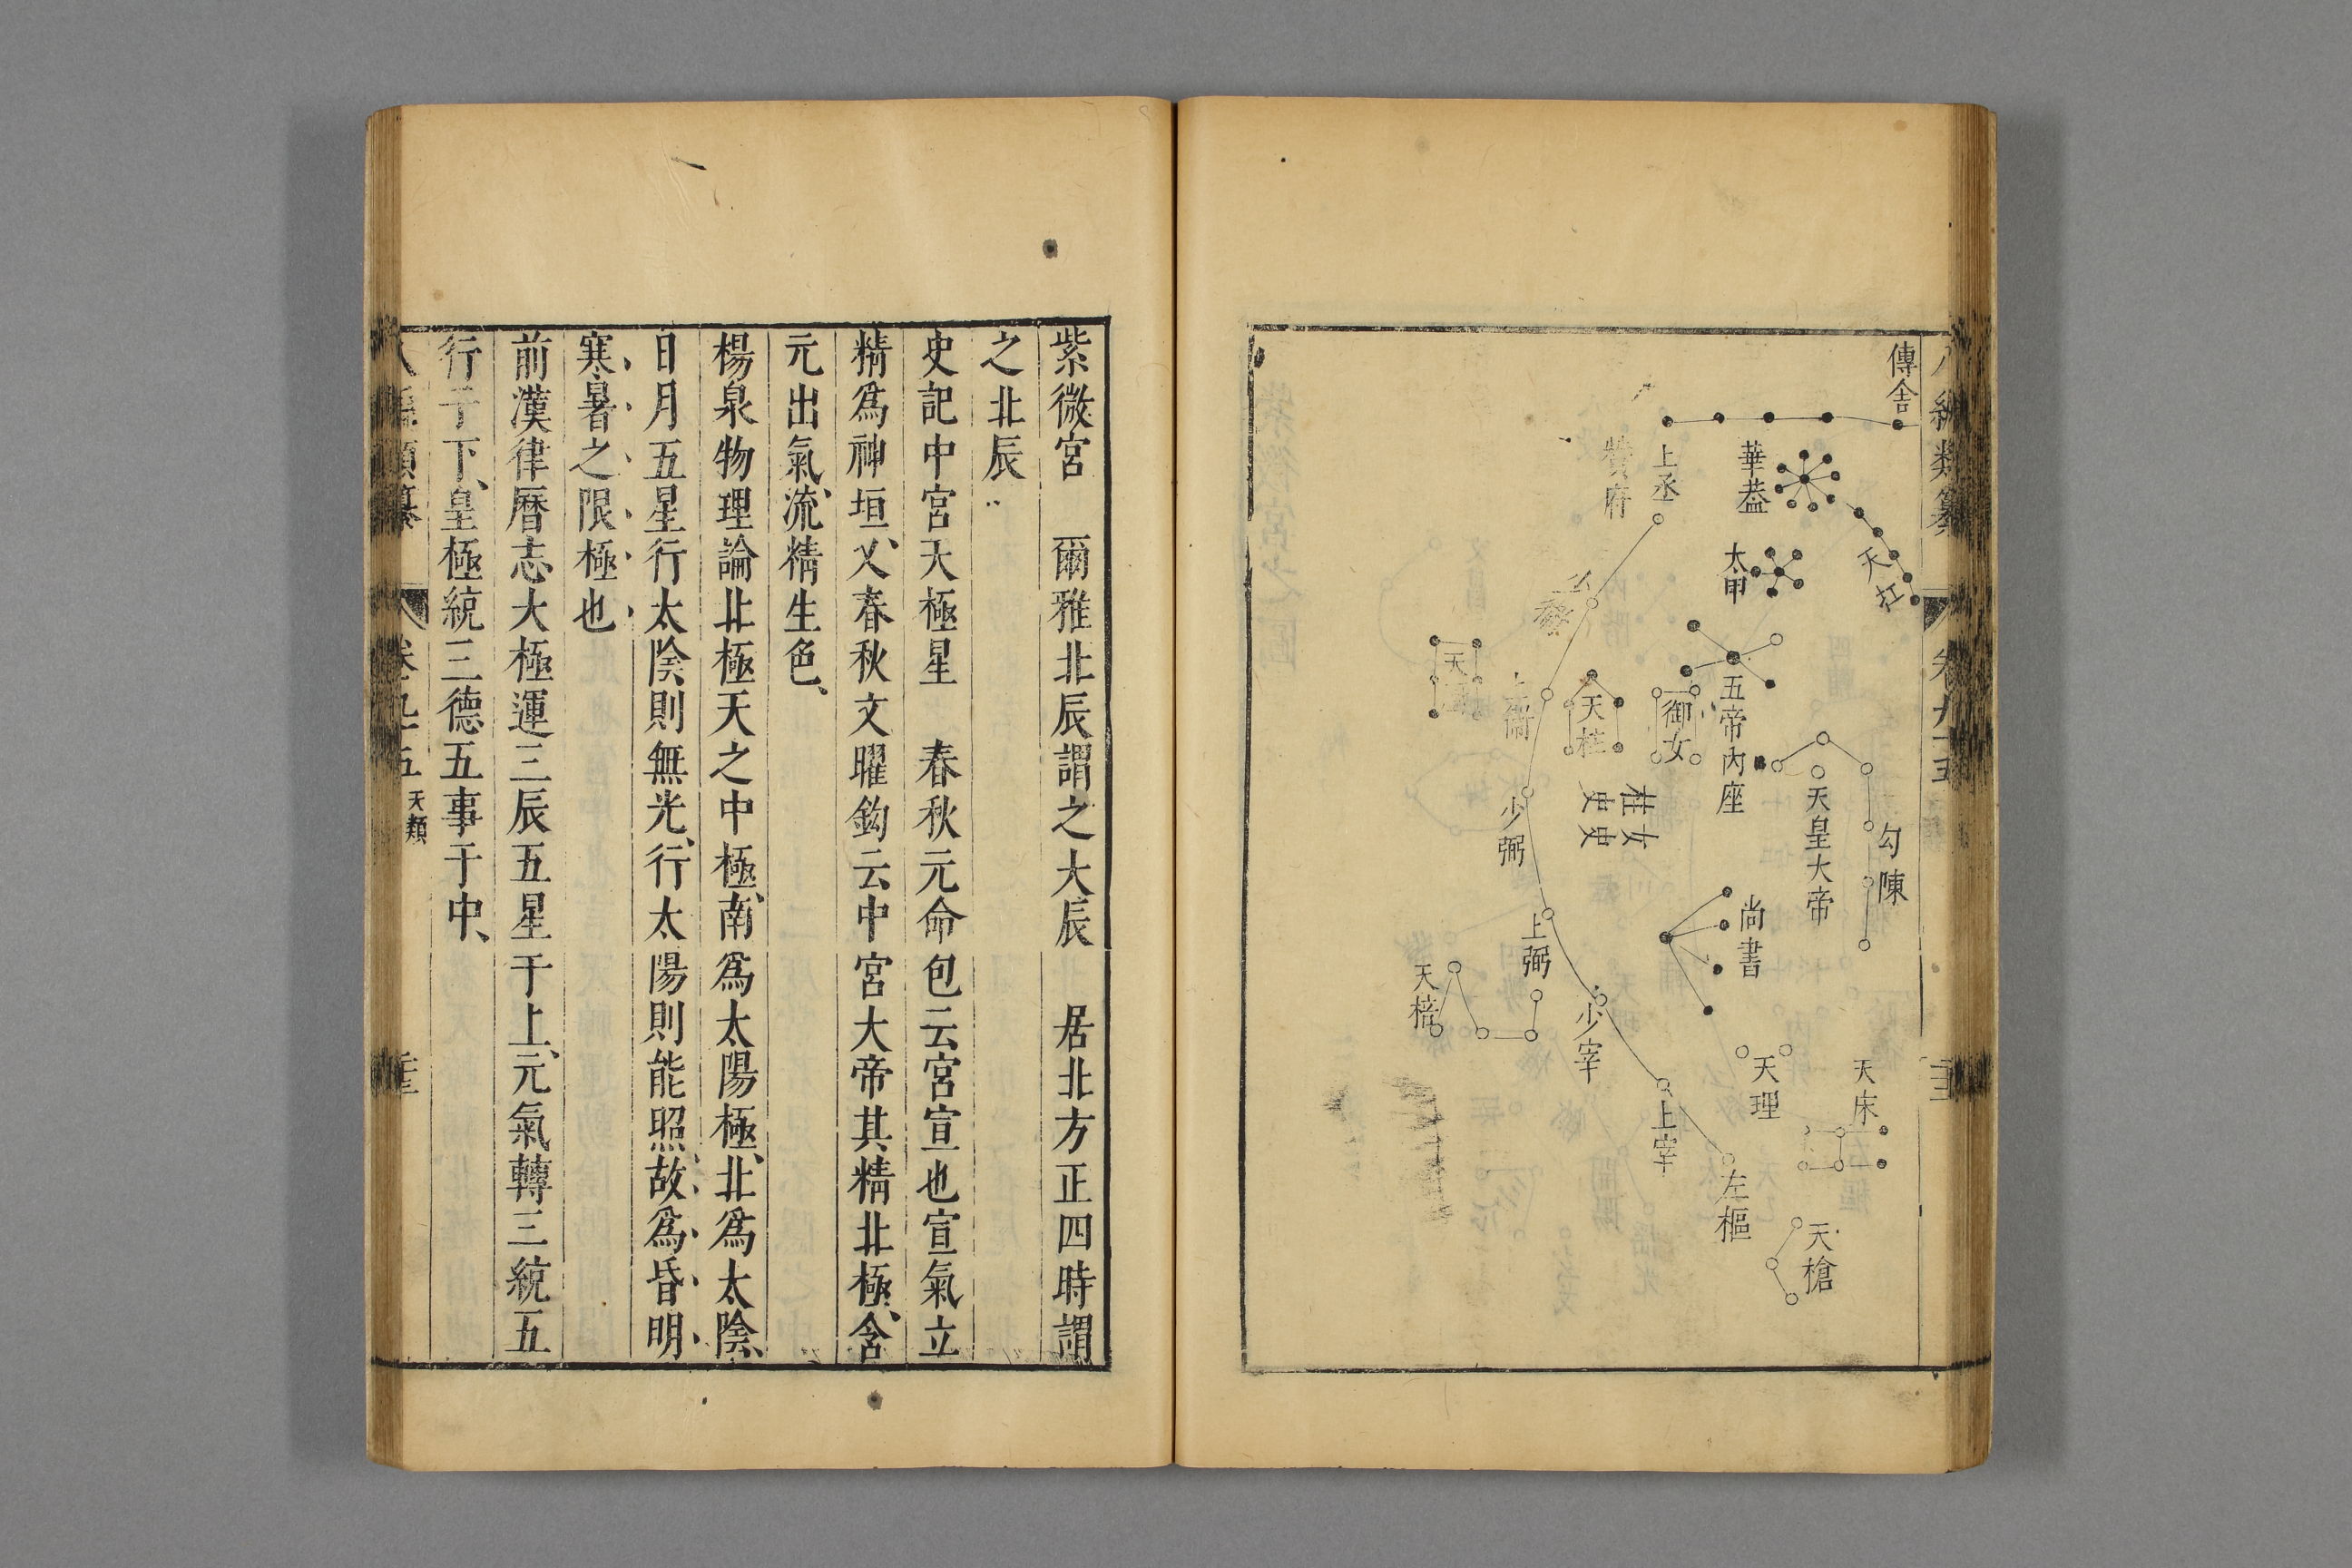 傳舍
華蓋
上丞
贊府
天杠
太甲
五帝內座
御女
天柱
女史
柱史
少弼
天皇大帝
勾陳
尚書
上弼
天棓
少宰
天理
天床
上宰
左樞
天槍
紫微宮　爾雅北辰謂之大辰　居北方正四時謂
之北辰
史記中宮天極星　春秋元命包云宮宣也宣氣立
精爲神垣、又春秋文曜鈎云中宮大帝其精北極、含
元出氣、流精生色、
楊泉物理論北極天之中極、南爲太陽極、北爲太陰、
日月五星行太陰則無光、行太陽則能照、故爲昏明、
寒暑之限極也
前漢律曆志、大極運三辰五星于上、元氣轉三統五
行于下、皇極統三德五事于中、
八編類纂
卷九十五
天類